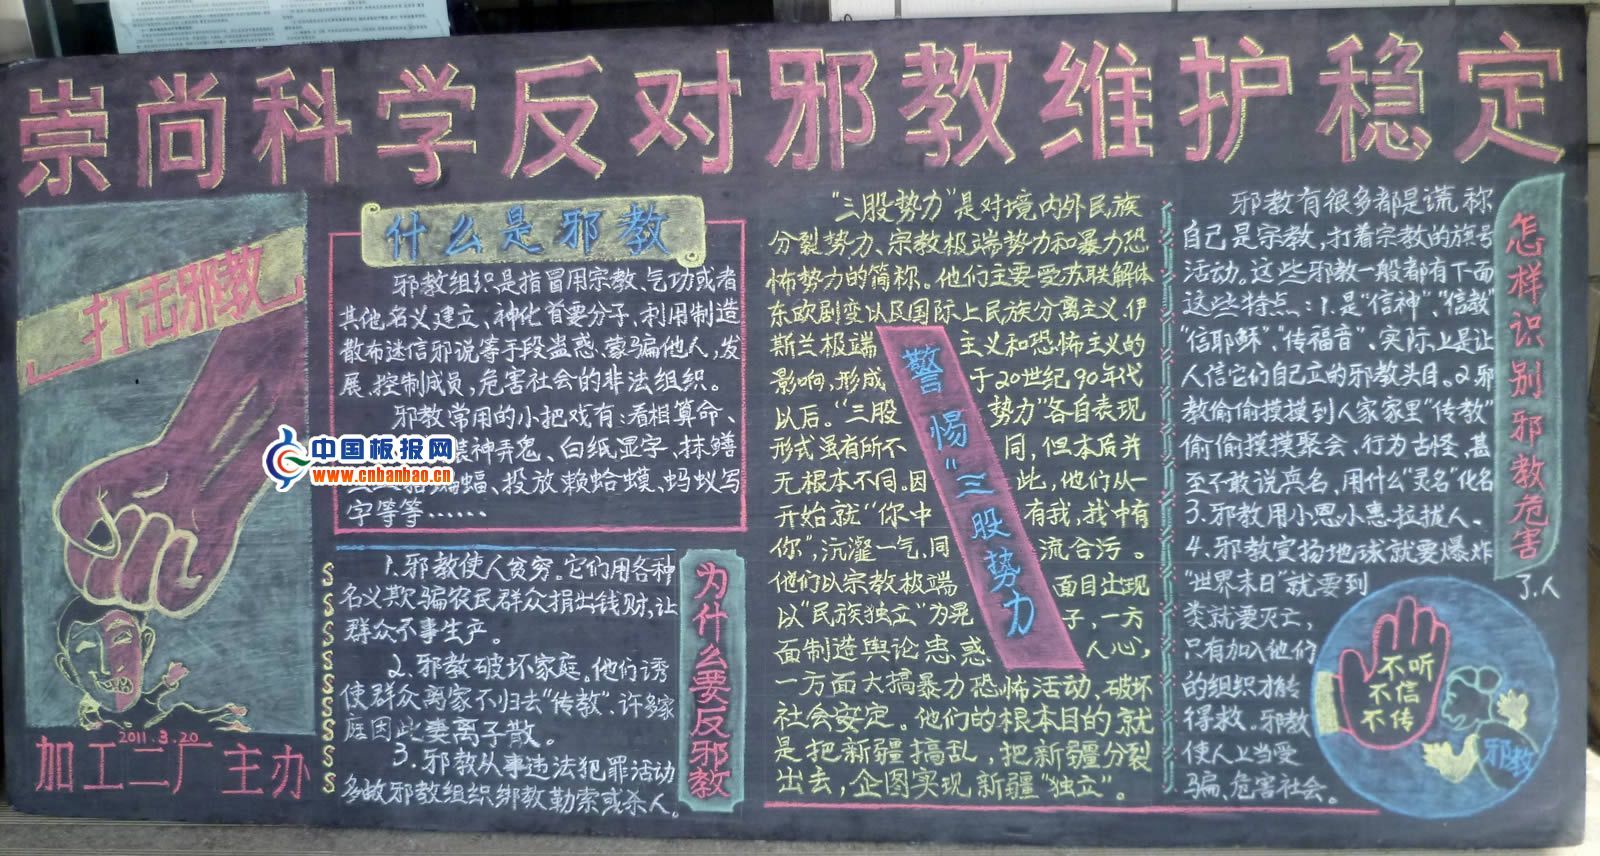 崇尚科学反对邪教维护稳定
打击邪教
2011.3.20
加工二厂主办
什么是邪教
邪教组织是指冒用宗教、气功或者
其他名义建立、神化首要分子、利用制造
散布迷信邪说等手段蛊惑、蒙骗他人,发
展、控制成员,危害社会的非法组织。
邪教常用的小把戏有:看相算命、
装神弄鬼、白纸显字、抹鳝
蝙蝠、投放赖蛤蟆、蚂蚁写
字等等……
中国板报网
www.cnbanbao.cn
为什么要反邪教
1.邪教使人贫穷。它们用各种
名义欺骗农民群众捐出钱财,让
群众不事生产。
2.邪教破坏家庭。他们诱
使群众离家不归去“传教”、许多家
庭因此妻离子散。
3.邪教从事违法犯罪活动
多故邪教组织绑教勒索或杀人。
警惕“三股势力
“三股势力”是对境内外民族
分裂势力、宗教极端势力和暴力恐
怖势力的简称。他们主要受苏联解体
东欧剧变以及国际上民族分离主义、伊
斯兰极端主义和恐怖主义的
影响,形成于20世纪90年代
以后。“三股势力”各自表现
形式虽有所不同,但本质并
无根本不同。因此,他们从一
开始就“你中有我,我中有
你”,沆瀣一气,同流合污。
他们以宗教极端面目出现
以“民族独立”为晃子,一方
面制造舆论患惑人心,
一方面大搞暴力恐怖活动、破坏
社会安定。他们的根本目的就
是把新疆搞乱,把新疆分裂
出去,企图实现新疆“独立”。
怎样识别邪教危害
邪教有很多都是谎称
自己是宗教,打着宗教的旗号
活动。这些邪教一般都有下面
这些特点:1.是“信神”、“信教”
“信耶稣”、“传福音”、实际上是让
人信它们自己立的邪教头目。2.邪
教偷偷摸摸到人家家里“传教”
偷偷摸摸聚会、行为古怪、甚
至不敢说真名、用什么“灵名”化名
3.邪教用小恩小惠拉拢人、
4.邪教宣扬地球就要爆炸
“世界末日”就要到了.人
类就要灭亡,
只有加入他们
的组织才能
得救、邪教
使人上当受
骗、危害社会。
不听
不信
不传
邪教